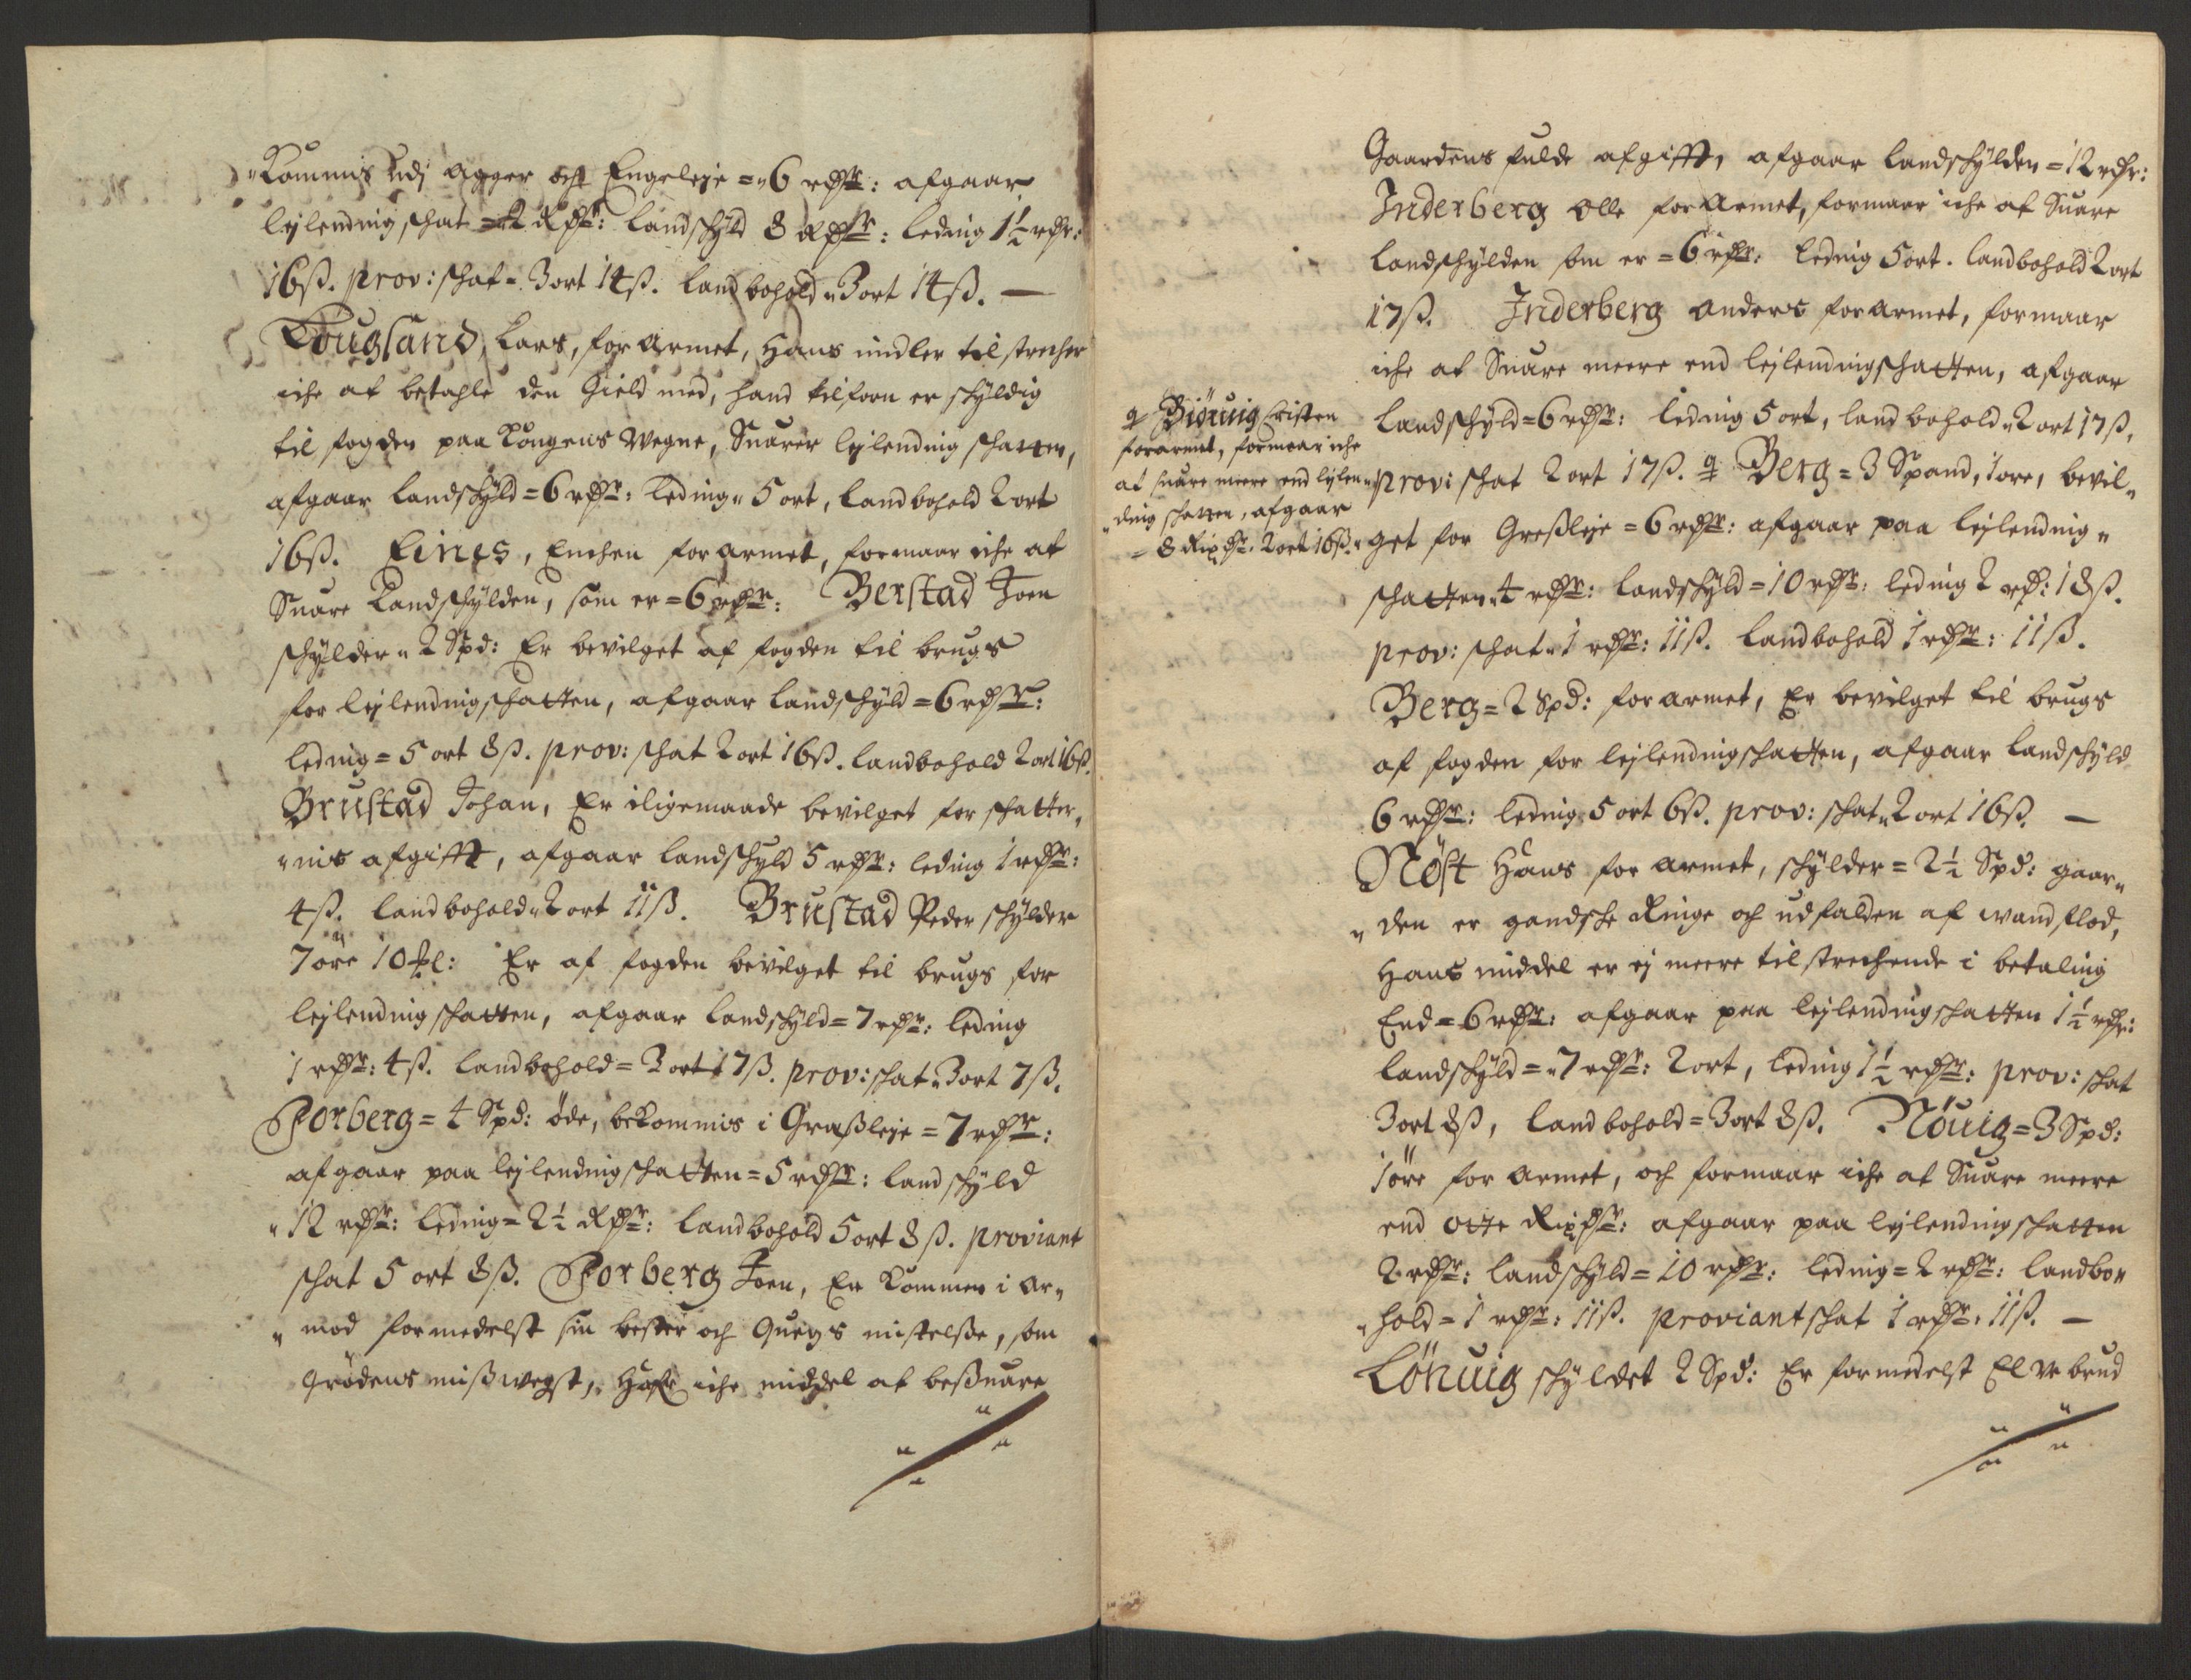 "Kommis udj agger och Engeleje =" 6 rdr: afgaar
lejlending schat = 2 Rdr: landschÿld 8 Rdr: leding 1½ rdr:
16ß. prov: schat = 3 ort 14ß. landbohold " 3 ort 14ß. —
Lars, forarmet, Hans midler tilstrecher
iche at betahle den Gield med, hand tilforn er schÿldig
til fogden paa Kongens Wegne, Suarer lejlending schatten,
afgaar landschÿld = 6 rdr: leding " 5 ort, landbohold 2 ort
16ß. Eines, Enchen forarmet, formaar iche at
Suare Landschÿlden, som er = 6 rdr: Berstad Joen
schÿlder " 2 Spd: Er bevilget af fogden til brugs
for lejlendingschatten, afgaar landschÿld = 6 rdr:
leding = 5 ort 8ß. prov: schat 2 ort 16ß. landbohold 2 ort 16ß.
Brustad Johan, Er iligemaade bevilget for schatter"
"nis afgifft, afgaar landschÿld 5 rdr: leding 1 rdr:
4ß. landbohold " 2 ort 11ß. Brustad Peder schÿlder
7 öre 10 : Er af fogden bevilget til brugs for
lejlendingschatten, afgaar landschÿld = 7 rdr: leding
1 rdr: 4ß. landbohold = 3 ort 17ß. prov: schat " 3 ort 7ß.
Porberg = 4 Spd: öde, bekommis i Graßleje = 7 rdr:
afgaar paa lejlendingschatten = 5 rdr: landschÿld
" 12 rdr: leding = 2½ Rdr: landbohold 5 ort 8ß. proviant
schat 5 ort 8ß. Porberg Joen, Er Kommen i Ar"
" mod formedelst sin bester och Quegs mistelße, som
grödens mißwegst, Hafr iche middel at beßuare
Gaardens fulde afgifft, afgaar landschÿlden = 12 rdr:
Inderberg Olle forarmet, formaar iche at Suare
Landschÿlden som er = 6 rdr: leding 5 ort. landbohold 2 ort
17ß. Inderberg Anders forarmet, formaar
iche at Suare meere end lejlendingschatten, afgaar
Landschÿld = 6 rdr: leding 5 ort, landbohold " 2 ort 17ß.
prov: schat 2 ort 17ß. Berg = 3 Spand, 1 öre, bevil"
get for Greßleje = 6 rdr: afgaar paa lejlending"
schatten " 4 rdr: landschÿld = 10 rdr: leding 2 rd: 18ß.
prov: schat " 1 rdr: 11ß. landbohold 1 rdr: 11ß.
Berg = 2 Spd: forarmet, Er bevilget til brugs
af fogden for lejlendingschatten, afgaar landschÿld
6 rdr: leding 5 ort 6ß. prov: schat " 2 ort 16ß. —
Nöst Hans forarmet, schÿlder = 2½ Spd: gaar"
" den er gandsche Ringe och udfalden af wandflod,
Hans middel er ej meere tilstrechende i betaling
End = 6 rdr: afgaar paa lejlendingschatten 1½ rdr:
landschÿld = " 7 rdr: 2 ort, leding 1½ rdr: prov: schat
3 ort 8ß, landbohold = 3 ort 8ß. Nöuig = 3 Spd:
1 öre forarmet, och formaar iche at Suare meere
end otte Rixdr: afgaar paa lejlendingschatten
2 rdr: landschÿld = 10 rdr: leding = 2 rdr: landbo"
" hold = 1 rdr: 11ß. proviantschat 1 rdr: 11ß. —
Lönuig schÿldet 2 Spd: Er formedelst Elvebrud
Biönuig Cristen
forarmet, formaar iche
at suare meere end lejlen"
"ding schatten, afgaar
= 8 Rixdr: 2 ort 16ß.